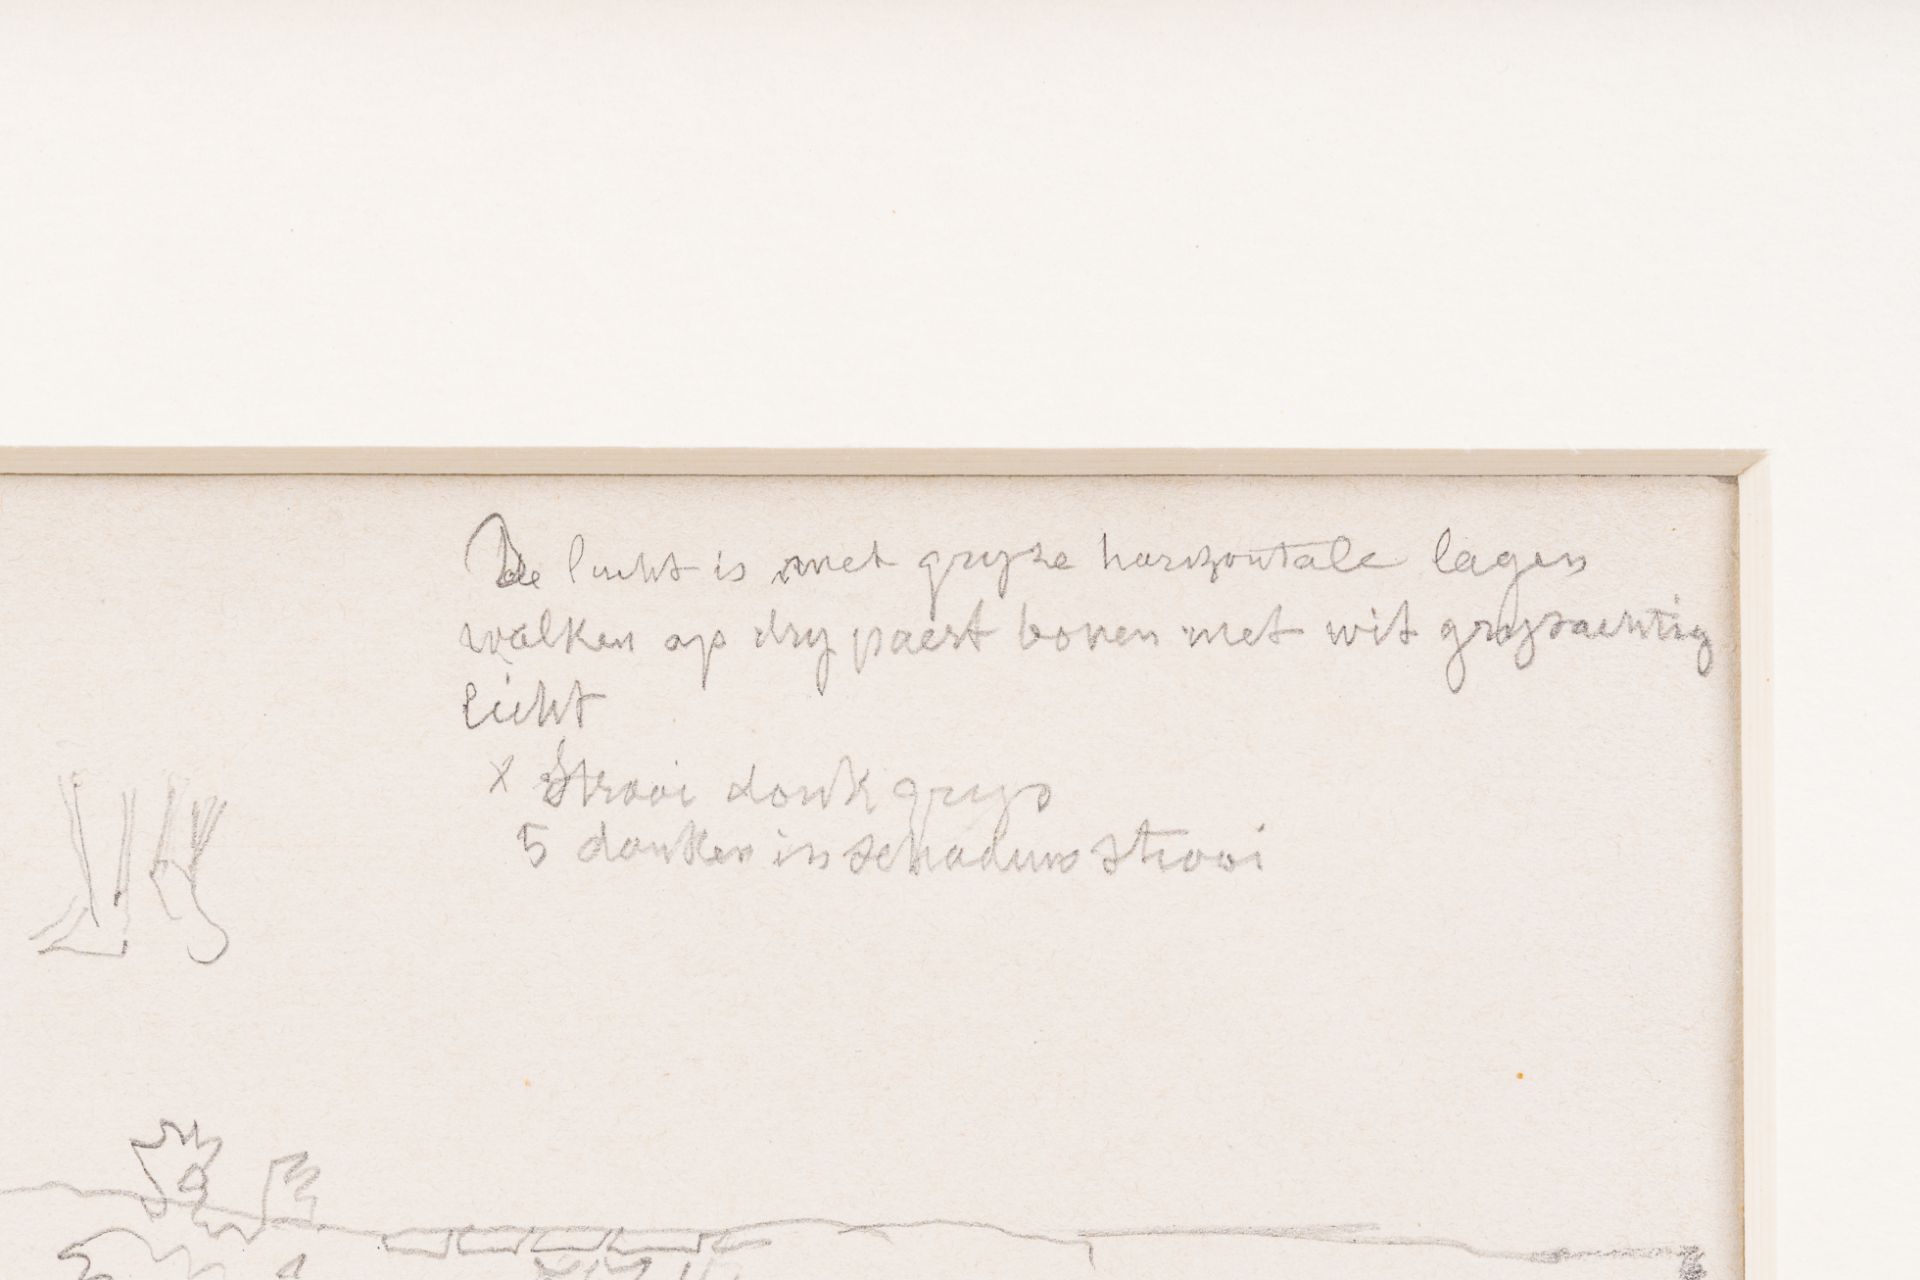 De lucht is met gryze horizontale lagen
wolken op dry paert boven met wit gryzachtig
licht
x Strooi donk grys
5 donker in schaduw strooi